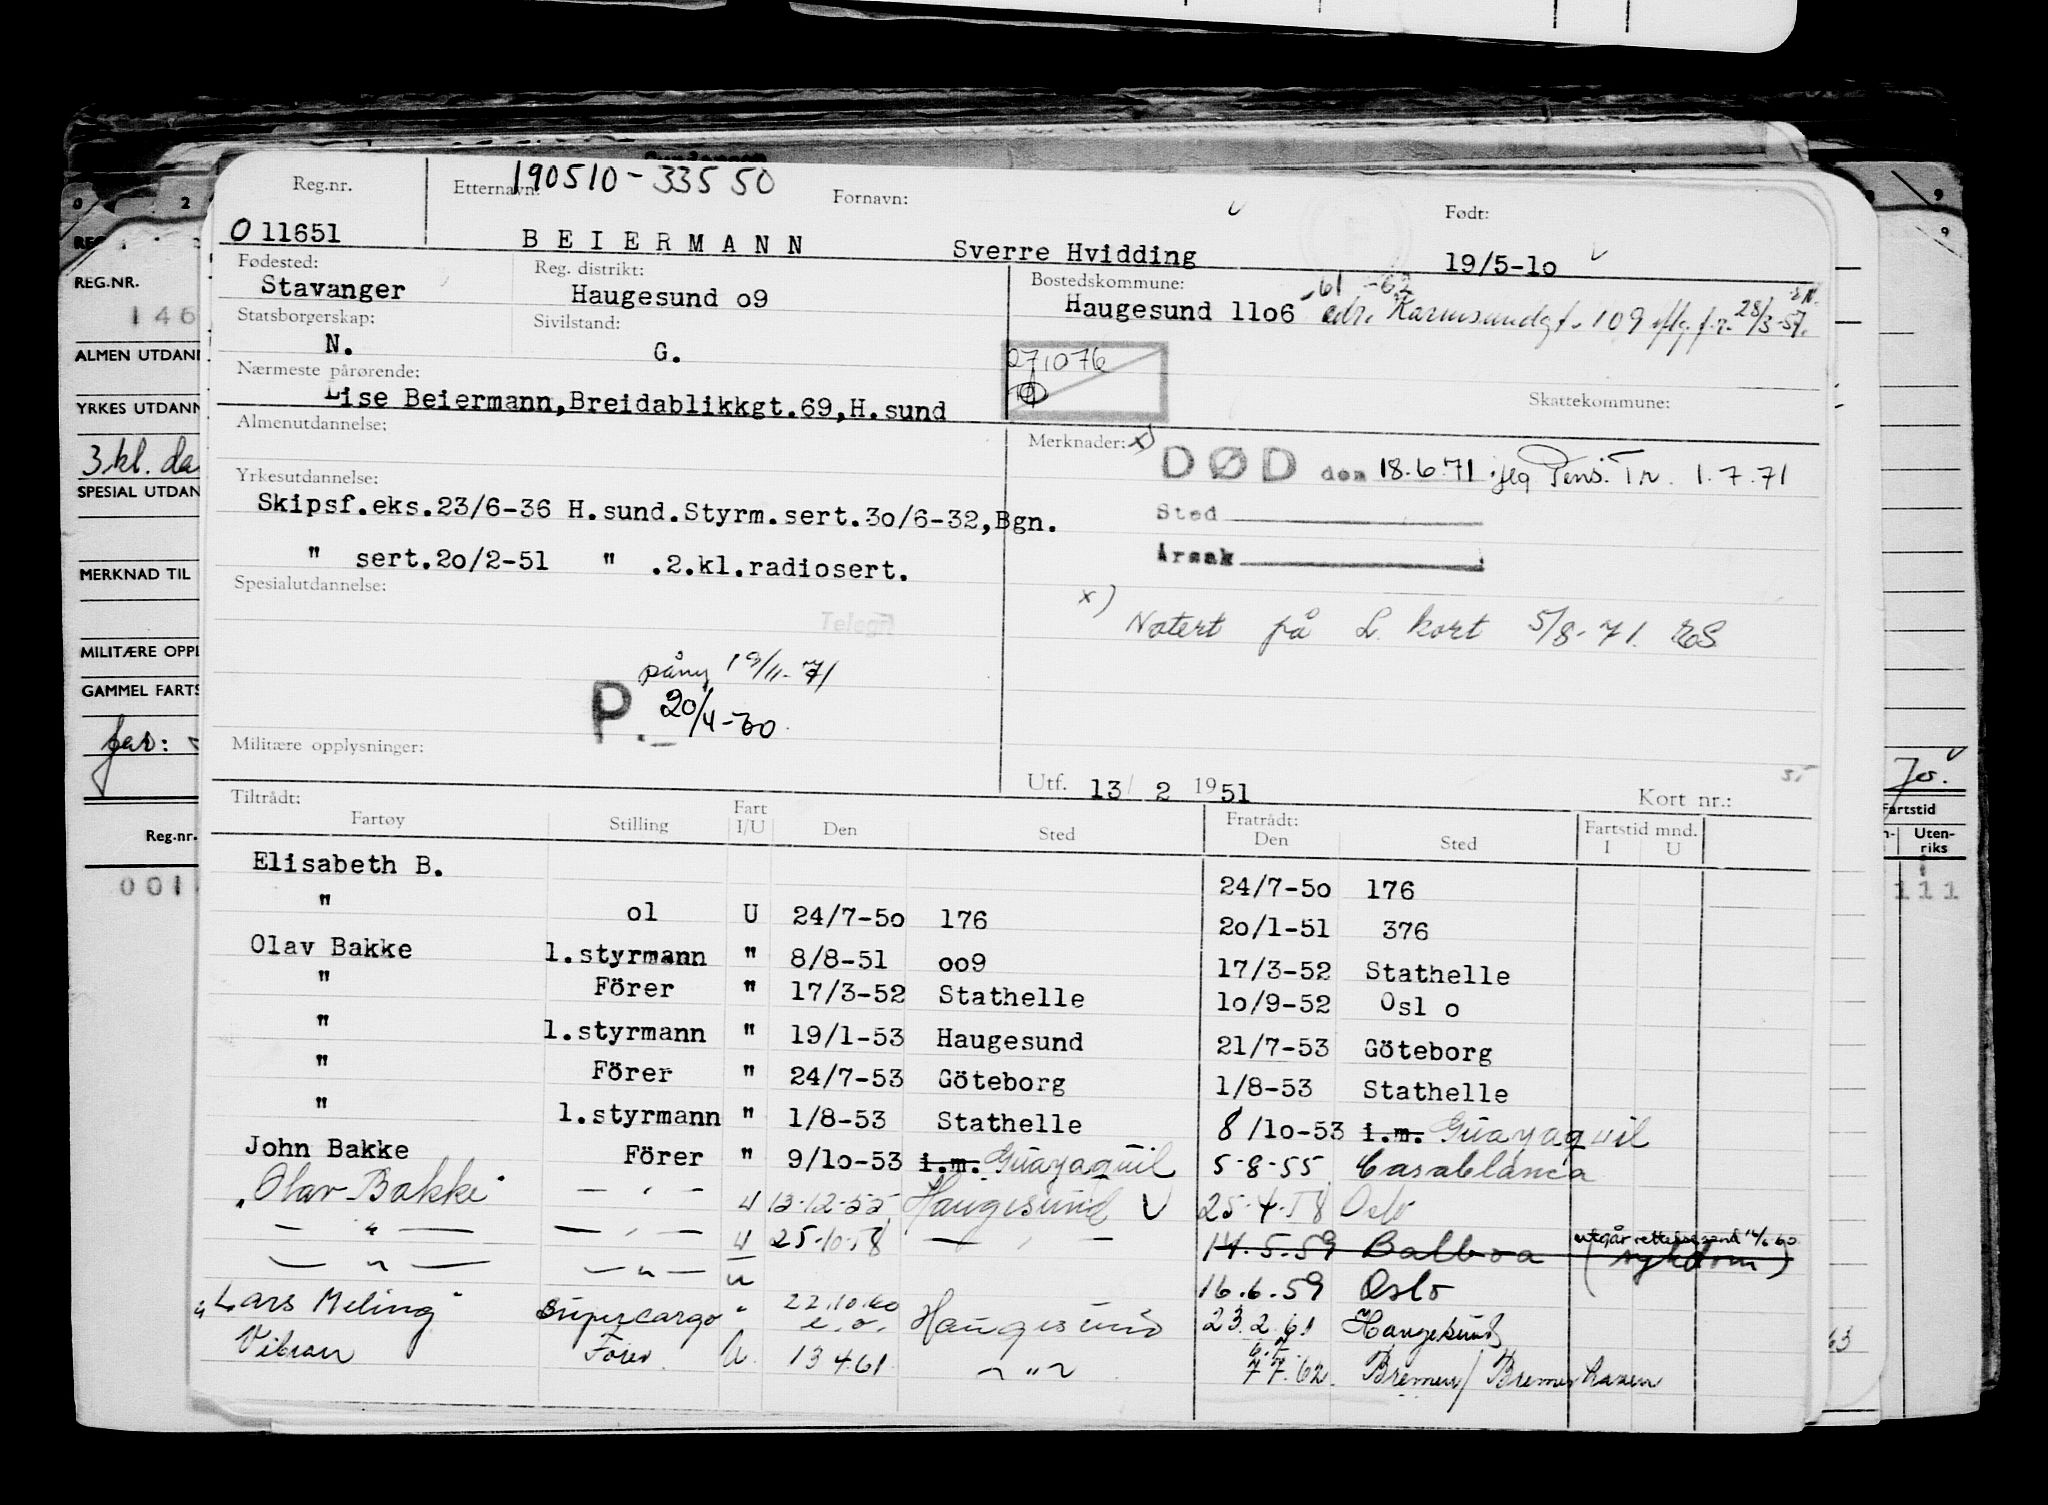 Reg.nr. Etternavn: 190510-33550 Fornavn: Født:
O 11651 BEIERMANN Sverre Hvidding 19/5-1o
Fødested: Reg. distrikt: Bostedskommune: 61-62
Stavanger Haugesund o9 Haugesund 11o6 adr. Karmsundgt. 109 28/3-57.
Statsborgerskap: Sivilstand:
N. G.
271076
Nærmeste pårørende: Skattekommune:
Lise Beiermann,Breidablikkgt.69,H.sund
Almenutdannelse: Merknader: x)
DØD den 18.6.71 Pens. Tr. 1.7.71
Yrkesutdannelse:
Skipsf.eks.23/6-36 H.sund.Styrm.sert.3o/6-32,Bgn.
Sted
" sert.2o/2-51 " .2.kl.radiosert.
Årsak
Spesialutdannelse:
x) Notert på L. kort 5/8-71. RS
Telegr
påny 19/11-71
P. 20/4-60.
Militære opplysninger:
Utf. 13/ 2 1951 Kort nr.:
Tiltrådt: Fratrådt:
Fartøy Stilling Fart I/U Den Sted Den Sted Fartstid mnd. I U
Elisabeth B. 24/7-5o 176
" ol U 24/7-5o 176 2o/1-51 376
Olav Bakke 1.styrmann " 8/8-51 oo9 17/3-52 Stathelle
" Förer " 17/3-52 Stathelle 1o/9-52 Osl o
" 1.styrmann " 19/1-53 Haugesund 21/7-53 Göteborg
" Förer " 24/7-53 Göteborg 1/8-53 Stathelle
" 1.styrmann " 1/8-53 Stathelle 8/1o-53 i.m. Guayaquil
John Bakke Förer " 9/1o-53 i.m. Guayaquil 5-8-55 Casablanca
"Olav Bakke" — " — U 13-12-55 Haugesund U 25-4-58 Oslo
— " — — " — U 25-10-58 — " — 14.5.59 Balboa (sykdom) utgår 14/6 60
— " — — " — U 16.6.59 Oslo
"Lars Meling" Supercargo " 22.10.60 e.o. Haugesund 23.2.61 Haugesund
6.7.
Vibran Fører U. 13 4.61. — " — 7 7.62. Bremen/Bremerhaven
REG.NR.
146
ALMEN UTDAN
YRKES UTDANN
3 kl. da
SPESIAL UTDAN
MERKNAD TIL
MILITÆRE OPPL
GAMMEL FARTS
far:
Reg.nr.
001
Fartstid
Uten-
riks
111
63